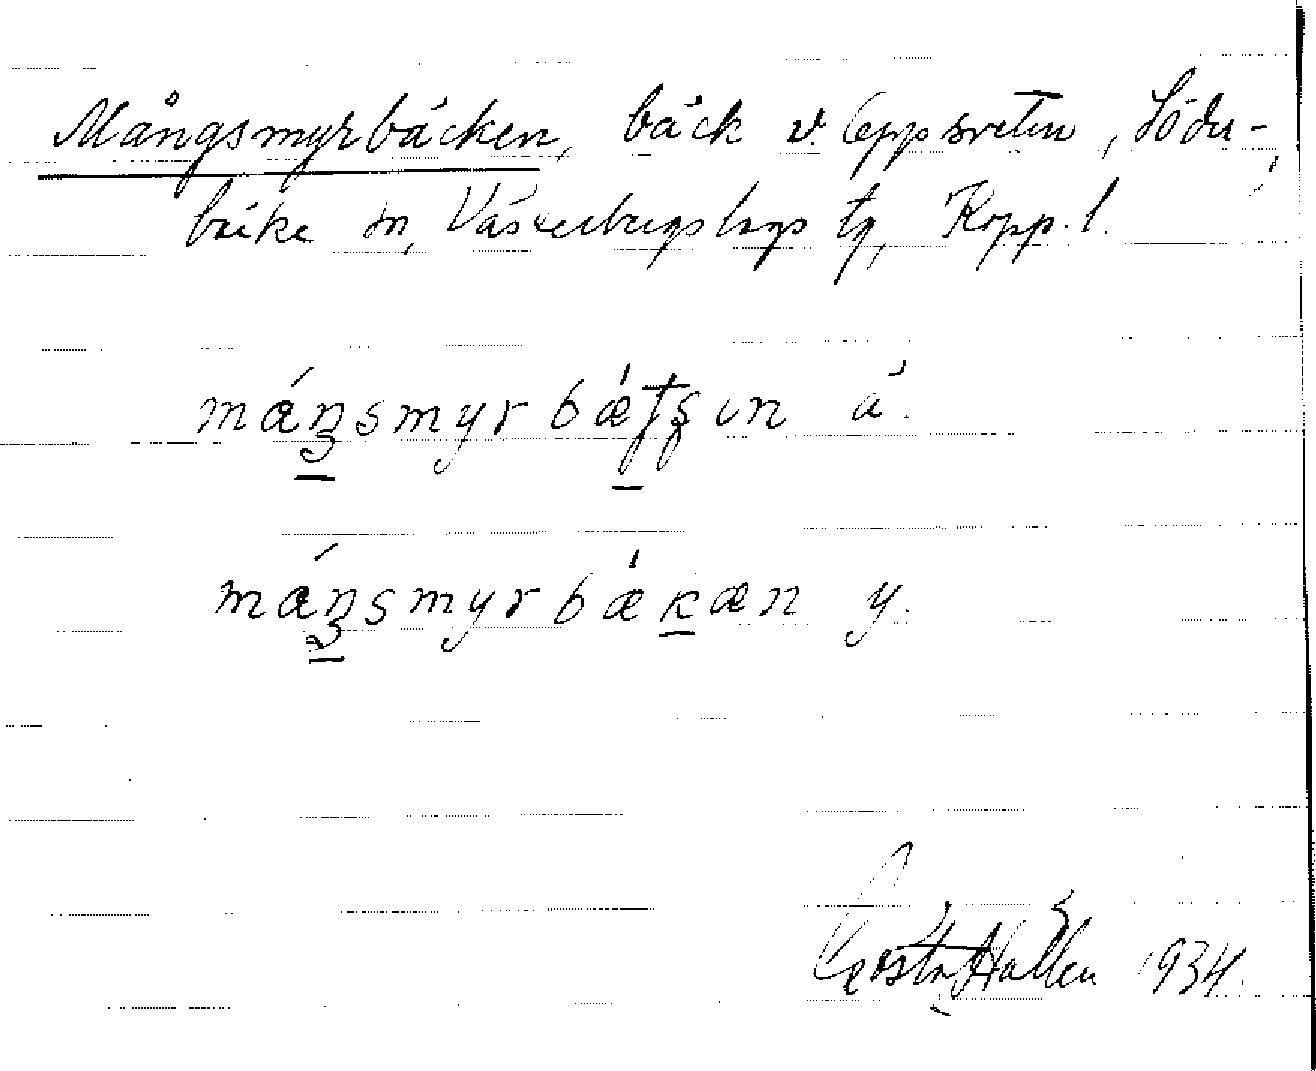 Mångsmyrbäcken, bäck v. Eppsveten, Söder-
bärke sn, Västerbergslags tg, Kopp. l.
mæŋsmyrbæ ä.
mæŋsmyrbækæn y.
Gösta Hallén 1934.